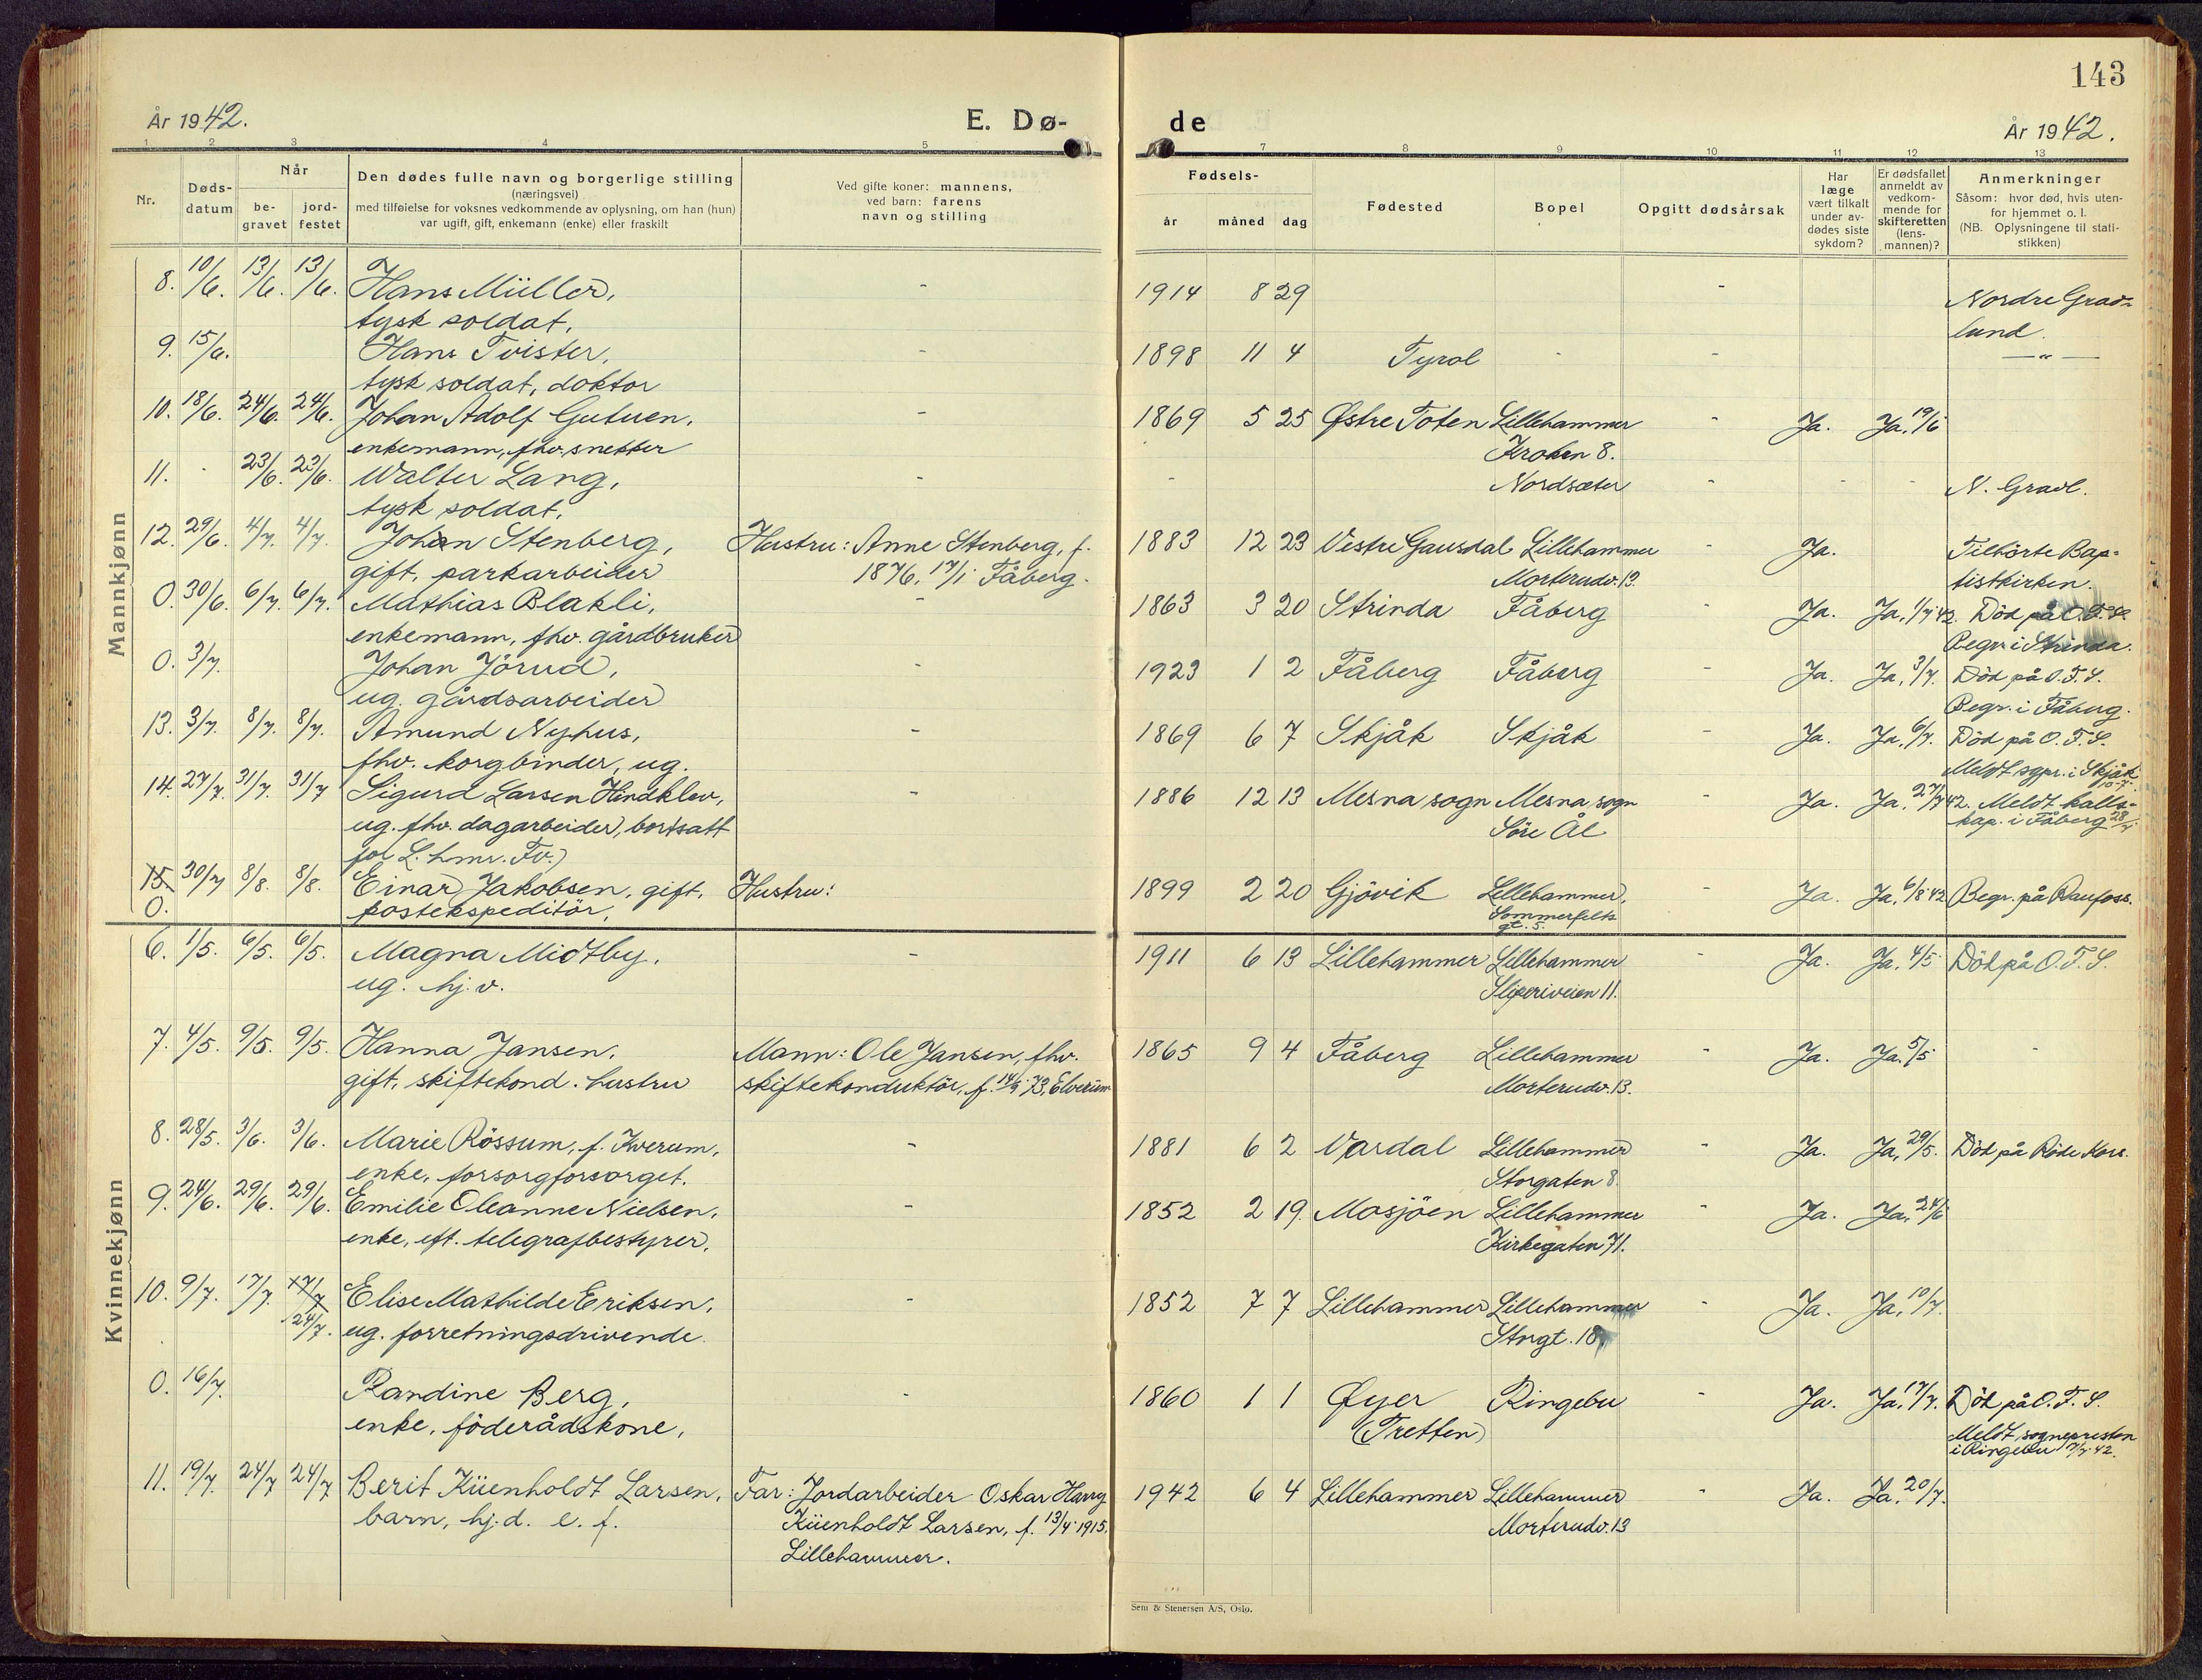 143
År 1942.
E. Dø-
de
År 1942.
1 2 3 4 5 7 8 9 10 11 12 13
Nr.
Døds-
datum
Når
be-
gravet
jord-
festet
Den dødes fulle navn og borgerlige stilling
(næringsvei)
med tilføielse for voksnes vedkommende av oplysning, om han (hun)
var ugift, gift, enkemann (enke) eller fraskilt
Ved gifte koner: mannens,
ved barn: farens
navn og stilling
Fødsels-
år måned dag
Fødested
Bopel
Opgitt dødsårsak
Har
læge
vært tilkalt
under av-
dødes siste
sykdom?
Er dødsfallet
anmeldt av
vedkom-
mende for
skifteretten
(lens-
mannen)?
Anmerkninger
Såsom: hvor død, hvis uten-
for hjemmet o. l.
(NB. Oplysningene til stati-
stikken)
Mannkjønn
8. 10/6. 13/6. 13/6. Hans Müller, - 1914 8 29 - Nordre Grav-
tysk soldat. lund.
9. 15/6. Hans Tvister, - 1898 11 4 Tyrol - - — " —
tysk soldat, doktor
10. 18/6. 24/6. 24/6. Johan Adolf Gutuen, - 1869 5 25 Østre Toten Lillehammer - Ja. Ja, 19/6
enkemann, fhv. snekker Kroken 8.
11. - 23/6. 23/6. Walter Lang, - - Nordsæter - - - N. Gravl.
tysk soldat.
12. 29/6. 4/7. 4/7. Johan Stenberg, Hustru: Anne Stenberg, f. 1883 12 23 Vestre Gausdal Lillehammer - Ja. Tilhörte Bap-
gift, parkarbeider 1876, 17/1 Fåberg. Morterudv. 13. tistkirken.
0. 30/6. 6/7. 6/7. Mathias Blakli, - 1863 3 20 Strinda Fåberg - Ja. Ja, 1/7 42. Död på O.F.S.
enkemann, fhv. gårdbruker Begr. i Strinda.
0. 3/7. Johan Jörud, - 1923 1 2 Fåberg Fåberg - Ja. Ja, 3/7. Död på O.F.S.
ug. gårdsarbeider Begr. i Fåberg.
13. 3/7. 8/7. 8/7. Amund Nyhus, - 1869 6 7 Skjåk Skjåk - Ja. Ja, 6/7. Död på O.F.S.
fhv. korgbinder, ug. Meldt sgpr. i Skjåk
14. 27/7. 31/7. 31/7 Sigurd Larsen Hindklev, - 1886 12 13 Mesna sogn Mesna sogn - Ja. Ja, 27/7 42. Meldt kalls-
ug. fhv. dagarbeider, bortsatt Söre Ål kap. i Fåberg 28/7
for L.hmr. Fv.)
15. 30/7 8/8. 8/8. Einar Jakobsen, gift, Hustru: 1899 2 20 Gjövik Lillehammer, - Ja. Ja, 6/8 42 Begr. på Raufoss.
0. postekspeditör, Sommerfelts
gt. 5.
Kvinnekjønn
6. 1/5. 6/5. 6/5. Magna Midtby, - 1911 6 13 Lillehammer Lillehammer - Ja. Ja, 4/5 Död på O.F.S.
ug. hj.v. Sliperiveien 11.
7. 4/5. 9/5. 9/5. Hanna Jansen, Mann: Ole Jansen, fhv. 1865 9 4 Fåberg Lillehammer - Ja. Ja. 5/5 -
gift, skiftekond. hustru skiftekonduktör, f. 14/9 73, Elverum Morterudv. 13.
8. 28/5. 3/6. 3/6. Marie Rössum, f. Kverum, - 1881 6 2 Vardal Lillehammer - Ja. Ja, 29/5. Död på Röde Kors.
enke, forsorgforsorget. Storgaten 8.
9. 24/6. 29/6. 29/6. Emilie Oleanne Nielsen, - 1852 2 19. Mosjöen Lillehammer - Ja. Ja, 24/6
enke, eft. telegrafbestyrer. Kirkegaten 71.
10. 9/7. 17/7. 17/7 Elise Mathilde Eriksen, - 1852 7 7 Lillehammer Lillehammer - Ja. Ja, 10/7.
24/7. ug. forretningsdrivende. Storgt. 18
0. 16/7. Randine Berg, - 1860 1 1 Øyer Ringebu - Ja. Ja, 17/7. Död på O.F.S.
enke, föderådskone, (Tretten) Meldt sognepresten
i Ringebu 17/7 42.
11. 19/7. 24/7 24/7 Berit Küenholdt Larsen, Far: Jordarbeider Oskar Harry 1942 6 4 Lillehammer Lillehammer - Ja. Ja, 20/7.
barn, hj.d. e. f. Küenholdt Larsen, f. 13/4 1915, Morterudv. 13
Lillehammer.
Sem & Stenersen A/S, Oslo.